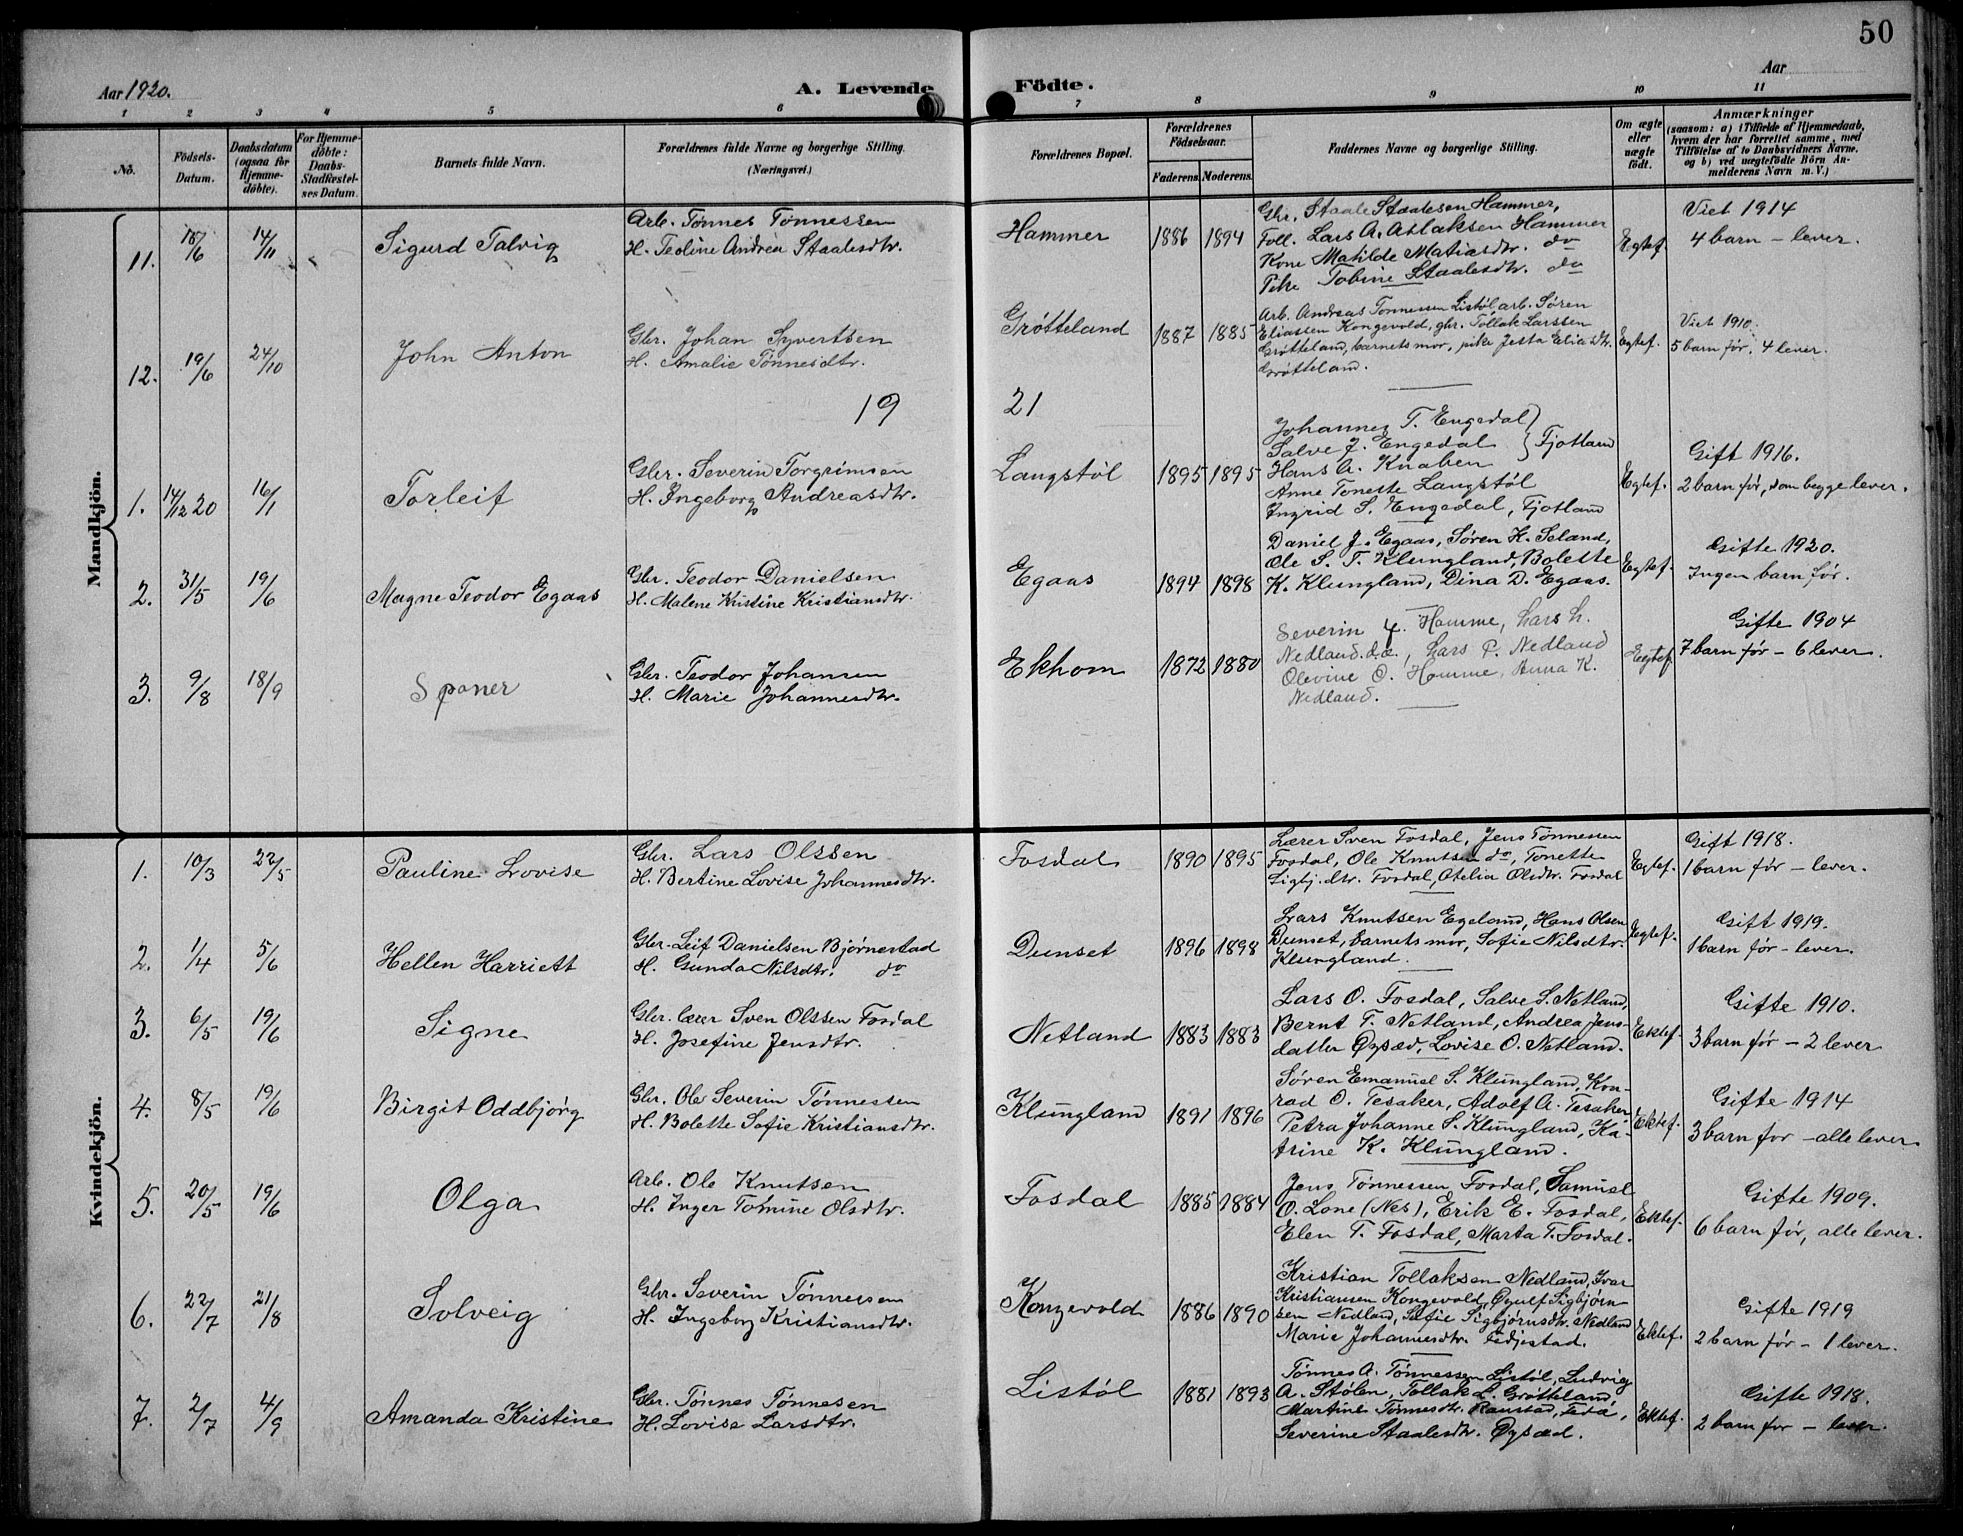 50
Aar 1920.
A. Levende Födte.
Aar
1 2 3 4 5 6 7 8 9 10 11
No.
Födsels-
Datum.
Daabsdatum
(ogsaa for
Hjemme-
döbte).
For Hjemme-
döbte:
Daabs-
Stadfæstel-
ses Datum.
Barnets fulde Navn.
Forældrenes fulde Navne og borgerlige Stilling.
(Næringsvei.)
Forældrenes Bopæl.
Forældrenes
Födselsaar.
Faderens. Moderens.
Faddernes Navne og borgerlige Stilling.
Om ægte
eller
uægte
födt.
Anmærkninger
(saasom: a) i Tilfælde af Hjemmedaab,
hvem der har forrettet samme, med
Tilföielse af to Daabsvidners Navne,
og b) ved uægtefödte Börn An-
melderens Navn m. V.)
Mandkjön.
11. 18/6 14/11 Sigurd Talvig
Arb. Tønnes Tønnessen
H. Teoline Andrea Staalesdtr.
Hammer 1886 1894
Gbr. Staale Staalesen Hammer,
Foll. Lars A. Atlaksen Hammer
Kone Matilde Matiasdtr. do
Pike Tobine Staalesdtr. do
Egtef.
Viet 1914
4 barn - lever.
12. 19/6 24/10 John Anton
Gbr. Johan Syvertsen
H. Amalie Tønnesdtr.
Grøtteland 1887 1885
Arb. Andreas Tønnessen Listøl, arb. Søren
Eliassen Kongevold, gbr. Tollak Larssen
Grøtteland, barnets mor, pike Jesta Elia dtr.
Grøtteland.
Egtef.
Viet 1910.
5 barn før, 4 lever.
19 21
1. 14/12 20 16/1 Torleif
Gbr. Severin Torgrimsen
H. Ingeborg Andreasdtr.
Langstøl 1895 1895
Johannes T. Engedal
Salve J. Engedal } Fjotland
Hans A. Knaben
Anne Tonette Langstøl
Ingrid S. Engedal, Fjotland
Egtef.
Gift 1916.
2 barn før, som begge lever.
2. 31/5 19/6 Magne Teodor Egaas
Gbr. Teodor Danielsen
H. Malene Kristine Kristiansdtr.
Egaas 1894 1898
Daniel J. Egaas, Søren K. Seland,
Ole S. T. Klungland, Bolette
K. Klungland, Dina D. Egaas.
Egtef.
Gifte 1920.
Ingen barn før.
3. 9/8 18/9 Spaner
Gbr. Teodor Johansen
H. Marie Johannesdtr.
Ekhom 1872 1880
Severin Homme, Lars h.
Nedland. d.æ., Lars P. Nedland
Olevine O. Homme, Anna K.
Nedland.
Egtef.
Gifte 1904
7 barn før - 6 lever.
Kvindekjön.
1. 10/3 22/5 Pauline Lovise
Gbr. Lars Olssen
H. Bertine Lovise Johannesdtr.
Fosdal 1890 1895
Lærer Sven Fosdal, Jens Tønnessen
Fosdal, Ole Knutsen do, Tonette
Sigbj.dtr. Fosdal, Otelia Olsdtr. Fosdal
Egtef.
Gift 1918.
1 barn før - lever.
2. 1/4 5/6 Hellen Harriett
Gbr. Leif Danielsen Bjørnestad
H. Gunda Nilsdtr. do
Dunset 1896 1898
Lars Knutsen Egeland, Hans Olsen
Dunset, barnets mor, Sofie Nilsdtr.
Klungland.
Egtef.
Gift 1919.
1 barn før - lever.
3. 6/5 19/6 Signe
Gbr. lærer Sven Olssen Fosdal
H. Josefine Jensdtr.
Netland 1883 1883
Lars O. Fosdal, Salve S. Netland,
Bernt T. Netland, Andrea Jens-
datter Øysæd, Lovise O. Netland.
Ektef.
Gifte 1910.
3 barn før - 2 lever
4. 8/5 19/6 Birgit Oddbjørg
Gbr. Ole Severin Tønnessen
H. Bolette Sofie Kristiansdtr.
Klungland 1891 1896
Søren Emanuel S. Klungland, Kon-
rad O. Tesaker, Adolf A. Tesaker
Petra Johanne S. Klungland, Ka-
trine K. Klungland.
Ektef.
Gifte 1914
3 barn før - alle lever.
5. 20/5 19/6 Olga
Arb. Ole Knutsen
H. Inger Tomine Olsdtr.
Fosdal 1885 1884
Jens Tønnessen Fosdal, Samuel
O. Lone (Nes), Erik E. Fosdal,
Elen T. Fosdal, Marta T. Fosdal.
Ektef.
Gifte 1909.
6 barn før, alle lever.
6. 22/7 21/8 Solveig
Gbr. Severin Tønnessen
H. Ingeborg Kristiansdtr.
Kongevold 1886 1890
Kristian Tollaksen Nedland, Ivar
Kristiansen Kongevold, Øyulf Sigbjørn-
sen Nedland, Sofie Sigbjørnsdtr. Nedland
Marie Johannesdtr. Fedjestad.
Ektef.
Gifte 1919
2 barn før - 1 lever.
7. 2/7 4/9 Amanda Kristine
Gbr. Tønnes Tønnesen
H. Lovise Larsdtr.
Listøl 1881 1893
Tønnes A. Tønnessen Listøl, Ludvig
A. Stølen, Tollak L. Grøtteland,
Martine Tønnesdtr. Raustad, Feda,
Severine Staalesdtr. Øysæd.
Ektef.
Gifte 1918.
2 barn før - lever.